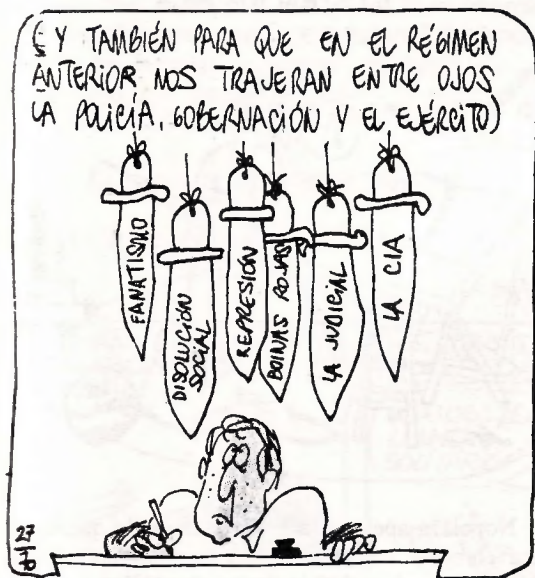 (Y TAMBIÉN PARA QUE EN EL RÉGIMEN
ANTERIOR NOS TRAJERAN ENTRE OJOS
LA POLICÍA, GOBERNACIÓN Y EL EJÉRCITO)
FANATISMO
DISOLUCIÓN
SOCIAL
REPRESIÓN
BOINAS ROJAS
LA JUDICIAL
LA CIA
27
70